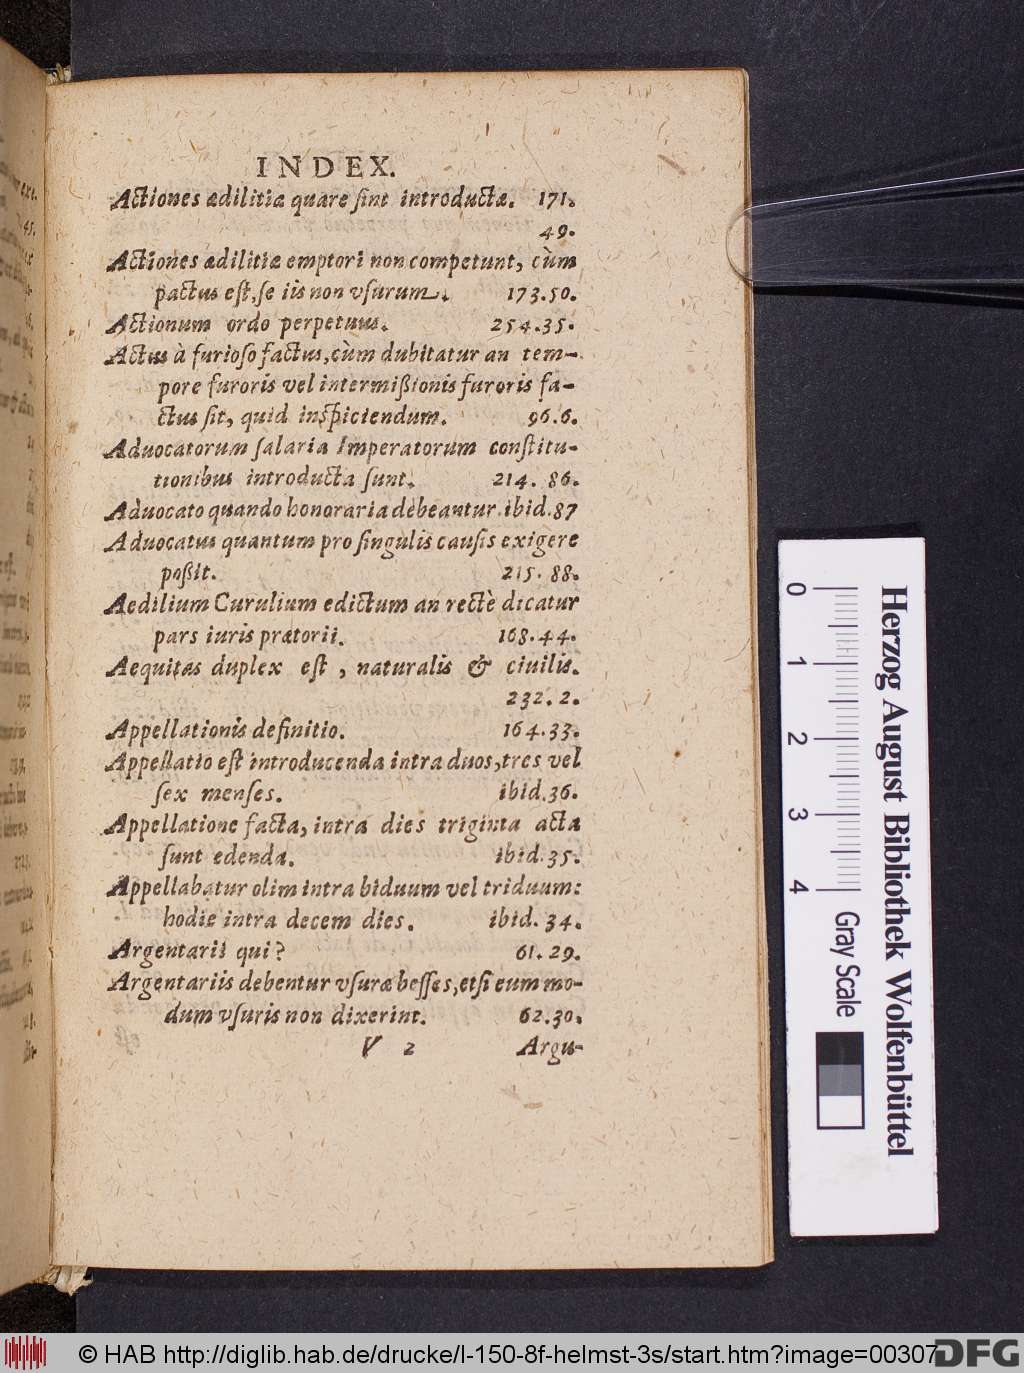 INDEX.
Actiones ædilitiæ quare ſint introductæ. 171.
49.
Actiones ædilitiæ emptori non competunt, cùm
pactus eſt, ſe iis non vſurum. 173.50.
Actionum ordo perpetuus. 254.35.
Actus à furioſo factus, cùm dubitatur an tem-
pore furoris vel intermißionis furoris fa-
ctus ſit, quid inſpiciendum. 96.6.
Aduocatorum ſalaria Imperatorum conſtitu-
tionibus introducta ſunt. 214. 86.
Aduocato quando honoraria debeantur. ibid. 87
Aduocatus quantum pro ſingulis cauſis exigere
poßit. 215. 88.
Aedilium Curulium edictum an rectè dicatur
pars iuris prætorii. 168.44.
Aequitas duplex eſt, naturalis & ciuilis.
232.2.
Appellationis definitio. 164.33.
Appellatio eſt introducenda intra duos, tres vel
ſex menſes. ibid.36.
Appellatione facta, intra dies triginta acta
ſunt edenda. ibid.35.
Appellabatur olim intra biduum vel triduum:
hodie intra decem dies. ibid. 34.
Argentarii qui? 61.29.
Argentariis debentur vſuræ beſſes, etſi eum mo-
dum vſuris non dixerint. 62.30.
V 2 Argu-
0 1 2 3 4 Gray Scale
Herzog August Bibliothek Wolfenbüttel
© HAB http://diglib.hab.de/drucke/l-150-8f-helmst-3s/start.htm?image=00307
DFG